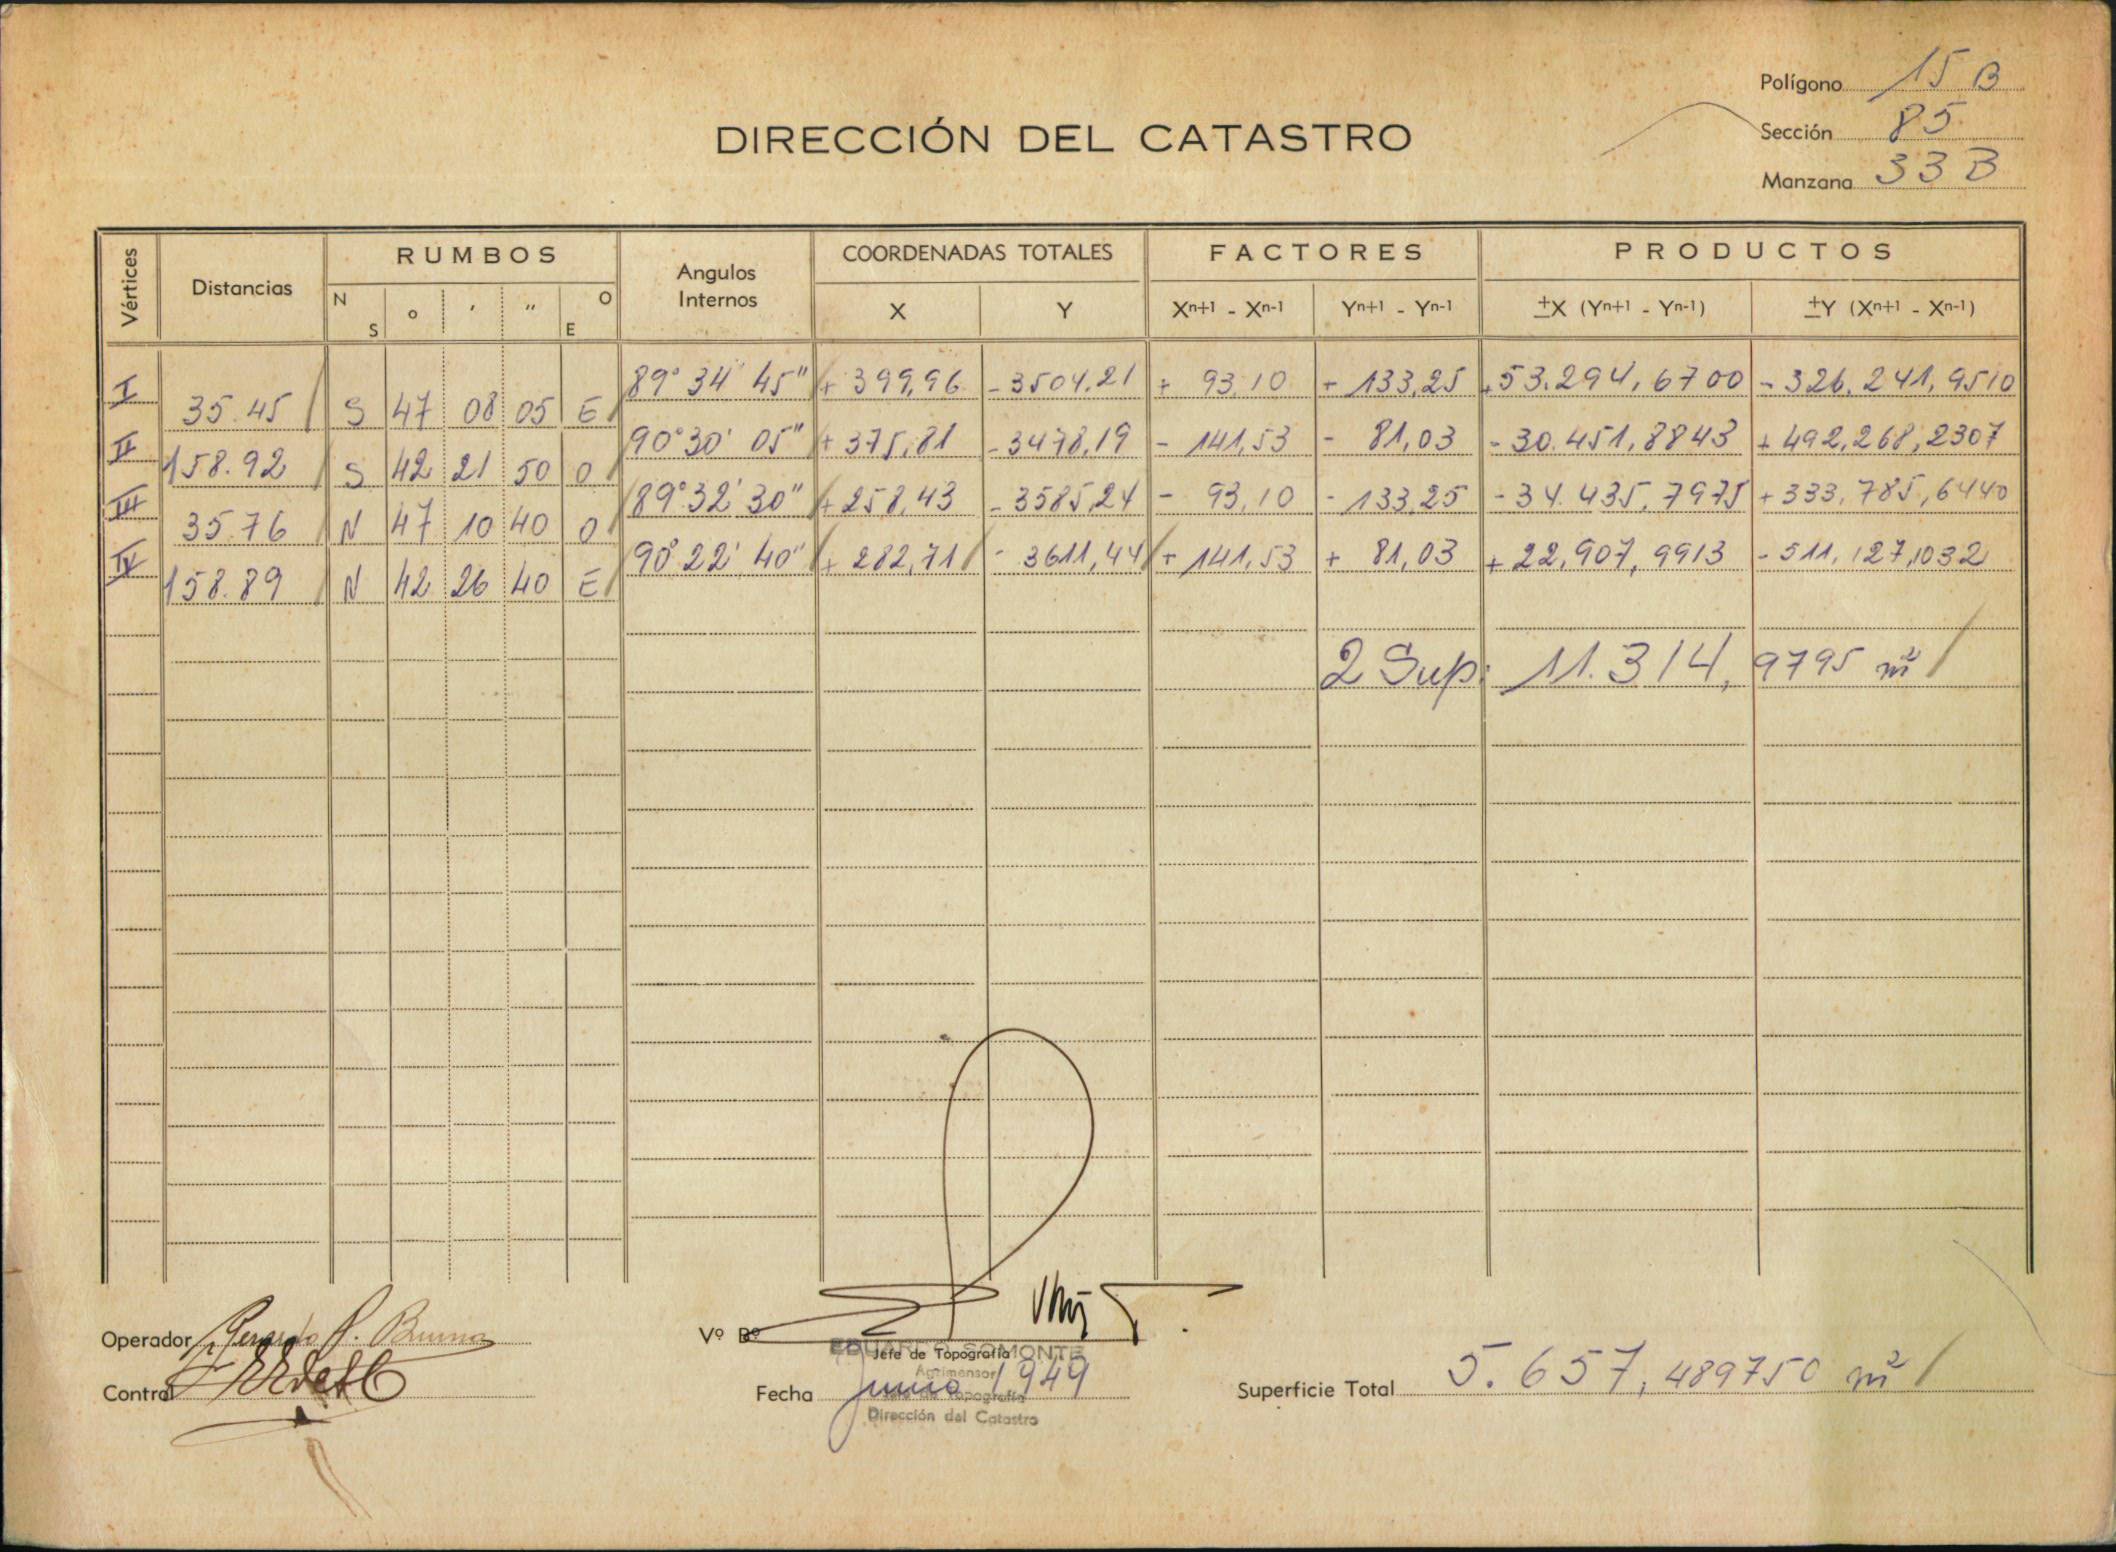 Polígono 15 B
DIRECCIÓN DEL CATASTRO
Sección 85
Manzana 33 B
Vértices Distancias RUMBOS Angulos Internos COORDENADAS TOTALES FACTORES PRODUCTOS
N S o ′ ″ O E X Y Xn+1 - Xn-1 Yn+1 - Yn-1 ±X (Yn+1 - Yn-1) ±Y (Xn+1 - Xn-1)
I 89° 34' 45" + 399,96 - 3504,21 + 93,10 + 133,25 +53.294,6700 - 326.241,9510
35.45 S 47 08 05 E
II 90° 30' 05" + 375,81 - 3478,19 - 141,53 - 81,03 - 30.451,8843 + 492,268,2307
158.92 S 42 21 50 O
III 89° 32' 30" + 258,43 - 3585,24 - 93,10 - 133,25 - 34.435,7975 + 333.785,6440
35.76 N 47 10 40 O
IV 90° 22' 40" + 282,71 - 3611,44 + 141,53 + 81,03 + 22,907,9913 - 511,127,1032
158.89 N 42 26 40 E
2 Sup: 11.314,9795 m²
Operador Gerardo
Vº Bº
EDUARDO SOMONTE
Jefe de Topografía
Agrimensor
Control
Fecha Junio 1949
Jefe de Topografía
Dirección del Catastro
Superficie Total 5.657,489750 m²